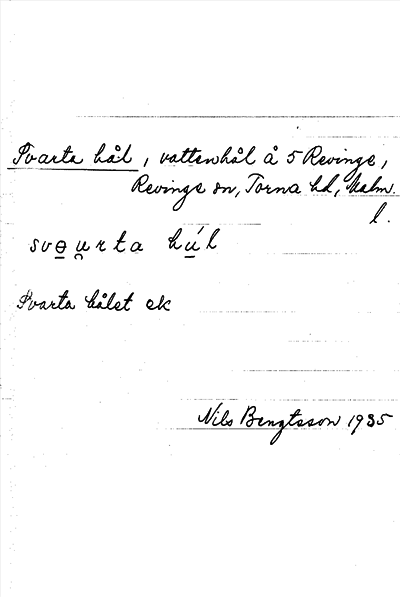 Svarta hål, vattenhål å 5 Revinge,
Revinge sn, Torna hd, Malm.
l.
svɵu̯rta húl
Svarta hålet ek
Nils Bengtsson 1935